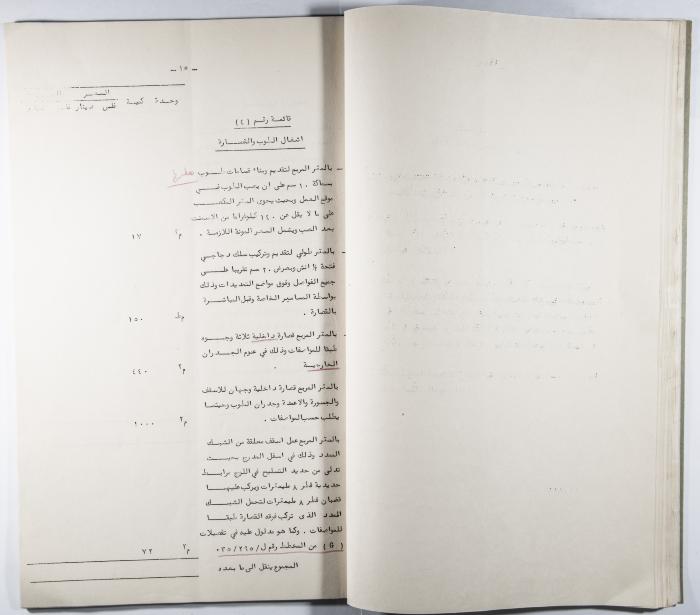 - ١٥ -
السعر
وحدة كمية فلس دينار
قائمة رقم (٤)
اشغال الطوب والقصارة
- بالمتر المربع لتقديم وبناء قطاعات طوب
بسماكة ١٠ سم على ان يصب الطوب في
موقع العمل وبحيث يحوى المتر المكعب
على ما لا يقل عن ١٤٠ كيلوغراما من الاسمنت
بعد الصب ويشمل السعر المونة اللازمة . م٢ ١٧
- بالمتر طولي لتقديم وتركيب سلك دجاجي
فتحة ½ انش وبعرض ٢٠ سم تقريبا على
جميع الفواصل وفوق مواضع التمديدات وذلك
بواسطة المسامير الخاصة وقبل المباشرة
بالقصارة . م.ط ١٥٠
- بالمتر المربع قصارة داخلية ثلاثة وجوه
طبقا للمواصفات وذلك في عموم الجدران
الخارجية . م٢ ٤٤٠
بالمتر المربع قصارة داخلية وجهان للاسقف
والجسورة والاعمدة وجدران الطوب وحيثما
يطلب حسب المواصفات . م٢ ١٠٠٠
بالمتر المربع عمل اسقف معلقة من الشبك
الممدد وذلك في اسفل المدرج بحيث
تدلى من حديد التسليح في اللوج مرابط
حديدية قطر ٨ مليمترات ويركب عليها
قضبان قطر ٨ مليمترات لتحمل الشبك
الممدد الذى تركب فوقه القصارة طبقا
للمواصفات . وكما هو مدلول عليه في تفصيلات
( G ) من المخطط رقم ل/٢٦٥/٠٣٥ م٢ ٧٢
المجموع ينقل الى ما بعده